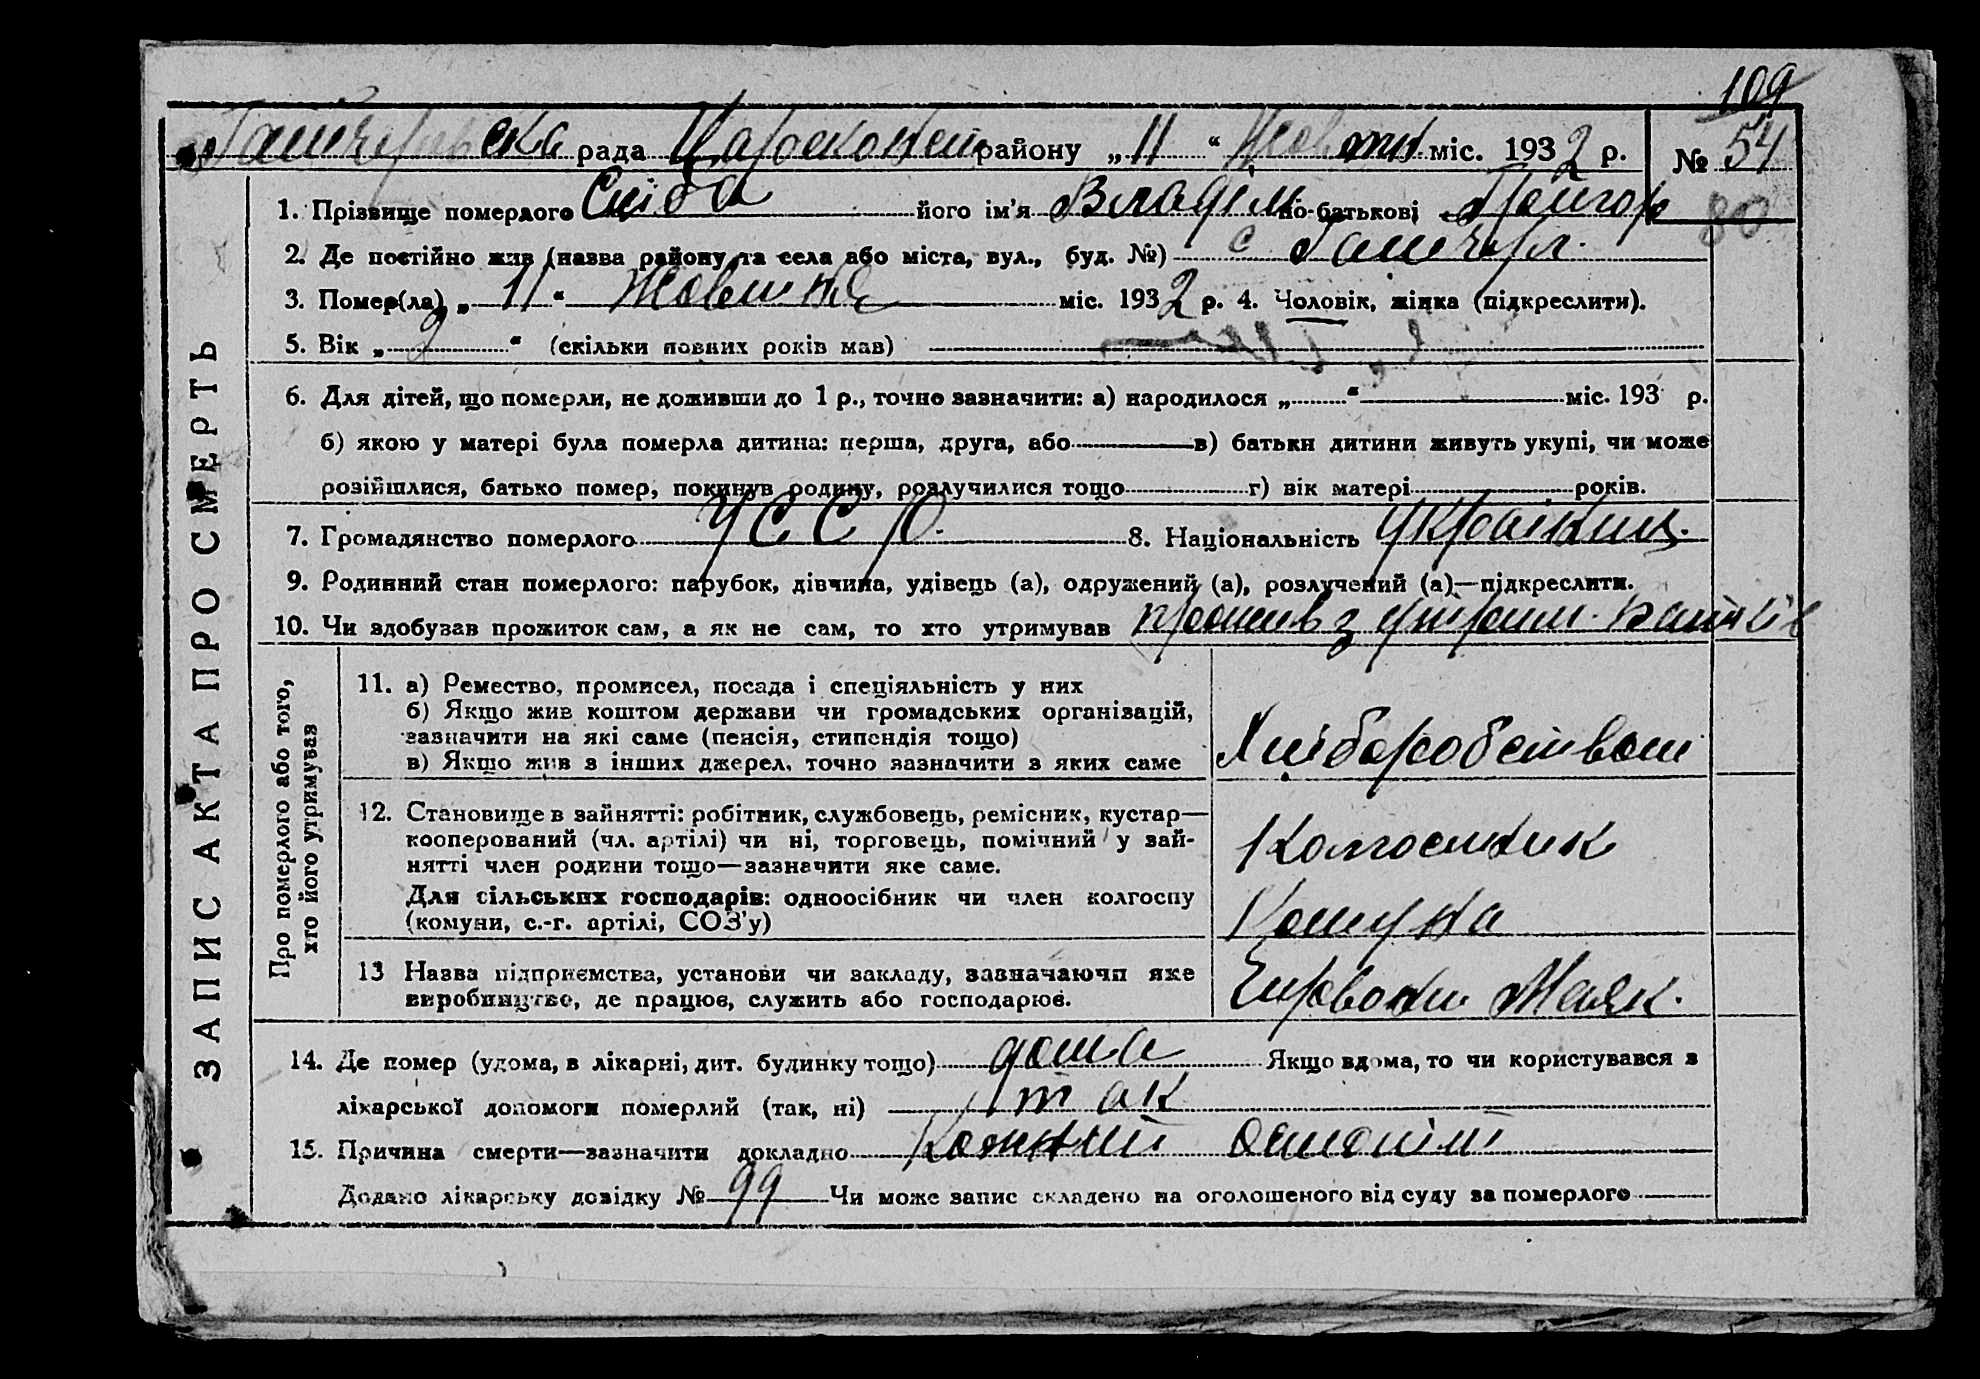 109
рада району „11“ Жовтн міс. 1932 р. № 54
80
1. Прізвище померлого Скіба його ім'я Владім по-батькові Григор
2. Де постійно жив (назва району та села або міста, вул., буд. №) с
3. Помер(ла) „11“ Жовтня міс. 1932 р. 4. Чоловік, жінка (підкреслити).
5. Вік „9“ (скільки повних років мав)
6. Для дітей, що померли, не доживши до 1 р., точно зазначити: а) народилося „ “ міс. 193 р.
б) якою у матері була померла дитина: перша, друга, або в) батьки дитини живуть укупі, чи може
розійшлися, батько помер, покинув родину, розлучилися тощо г) вік матері років.
7. Громадянство померлого УССР. 8. Національність Українец.
9. Родинний стан померлого: парубок, дівчина, удівець (а), одружений (а), розлучений (а)—підкреслити.
10. Чи здобував прожиток сам, а як не сам, то хто утримував прожив з утрим. батьків
ЗАПИС АКТА ПРО СМЕРТЬ
Про померлого або того,
хто його утримував
11. а) Ремество, промисел, посада і спеціяльність у них
б) Якщо жив коштом держави чи громадських організацій,
зазначити на які саме (пенсія, стипендія тощо)
в) Якщо жив з інших джерел, точно зазначити з яких саме
Хліборобством
12. Становище в зайнятті: робітник, службовець, ремісник, кустар—
кооперований (чл. артілі) чи ні, торговець, помічний у зай-
нятті член родини тощо—зазначити яке саме.
Для сільських господарів: одноосібник чи член колгоспу
(комуни, с.-г. артілі, СОЗ'у)
Колгоспник
Комуна
13 Назва підприємства, установи чи закладу, зазначаючи яке
виробництво, де працює, служить або господарює.
Червони Маяк.
14. Де помер (удома, в лікарні, дит. будинку тощо) дома Якщо вдома, то чи користувався з
лікарської допомоги померлий (так, ні) так
15. Причина смерти—зазначити докладно
Додано лікарську довідку № 99 Чи може запис складено на оголошеного від суду за померлого